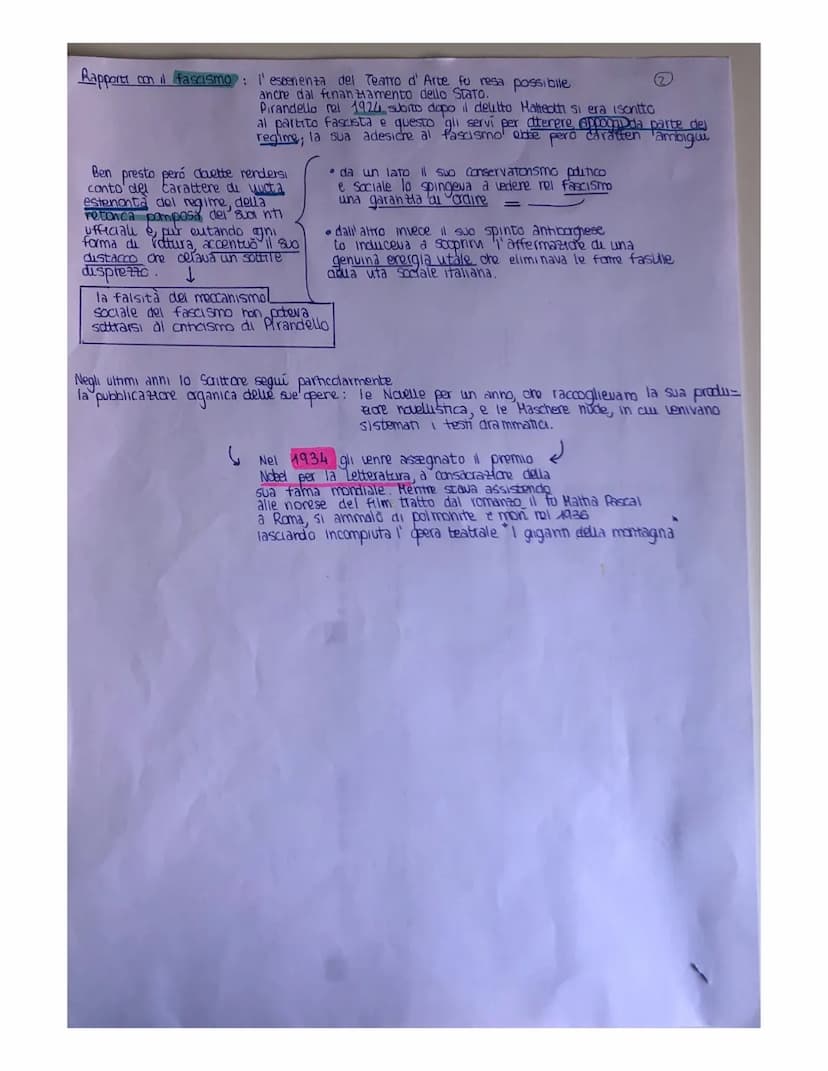 Rapporti con il fascismo: l'esperienza del Teatro d'Arte fu resa possibile
2
anche dal finanziamento dello Stato.
Pirandello nel 1924 subito dopo il delitto Matteotti si era iscritto
al partito fascista e questo gli servì per ottenere appoggi da parte del
regime; la sua adesione al fascismo ebbe però caratteri ambigui
• da un lato il suo conservatorismo politico
e sociale lo spingeva a vedere nel fascismo
una garanzia di ordine
• dall'altro invece il suo spirito antiborghese
lo induceva a scoprirvi l'affermazione di una
genuina energia vitale che eliminava le forme fasulle
della vita sociale italiana.
Ben presto però dovette rendersi
conto del carattere di vuota
esteriorità del regime, della
retorica pomposa dei suoi riti
ufficiali e, pur evitando ogni
forma di rottura, accentuò il suo
distacco che celava un sottile
disprezzo. ↓
la falsità del meccanismo
sociale del fascismo non poteva
sottrarsi al criticismo di Pirandello
Negli ultimi anni lo scrittore seguì particolarmente
la pubblicazione organica delle sue opere: le Novelle per un anno, che raccoglievano la sua produ=
zione novellistica, e le Maschere nude, in cui venivano
sistemati i testi drammatici.
Nel 1934 gli venne assegnato il premio
Nobel per la Letteratura, a consacrazione della
sua fama mondiale. Mentre stava assistendo
alle riprese del film tratto dal romanzo Il fu Mattia Pascal
a Roma, si ammalò di polmonite e morì nel 1936
lasciando incompiuta l'opera teatrale "I giganti della montagna"